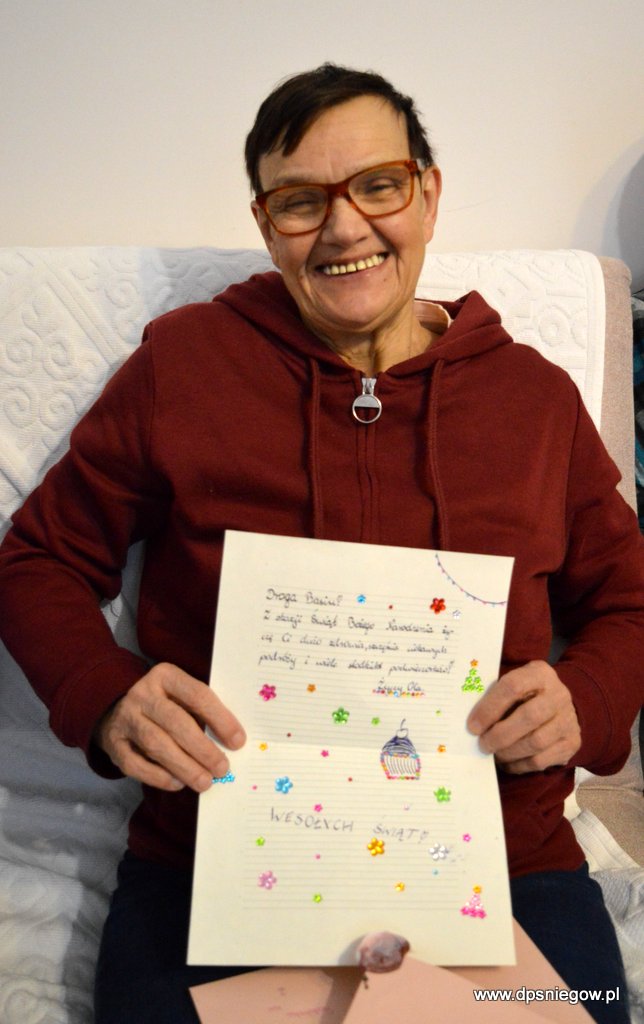 Droga Basiu!
Z okazji Świąt Bożego Narodzenia ży-
czę Ci dużo zdrowia, szczęścia, ciekawych
podróży i wiele słodkich podwieczorków!
Życzy Ola
WESOŁYCH ŚWIĄT!
www.dpsniegow.pl